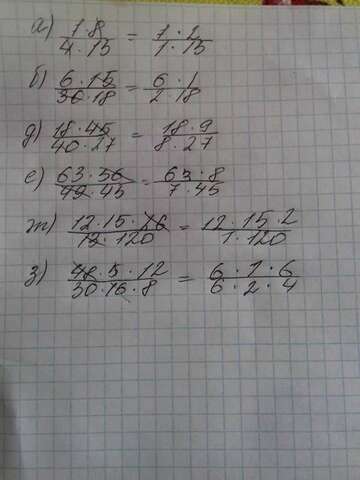 а) 1·8/4·15 = 1·2/1·15
б) 6·15/30·18 = 6·1/2·18
д) 18·45/40·27 = 18·9/8·27
е) 63·56/49·45 = 63·8/7·45
ж) 12·15·26/13·120 = 12·15·2/1·120
з) 48·5·12/30·16·8 = 6·1·6/6·2·4